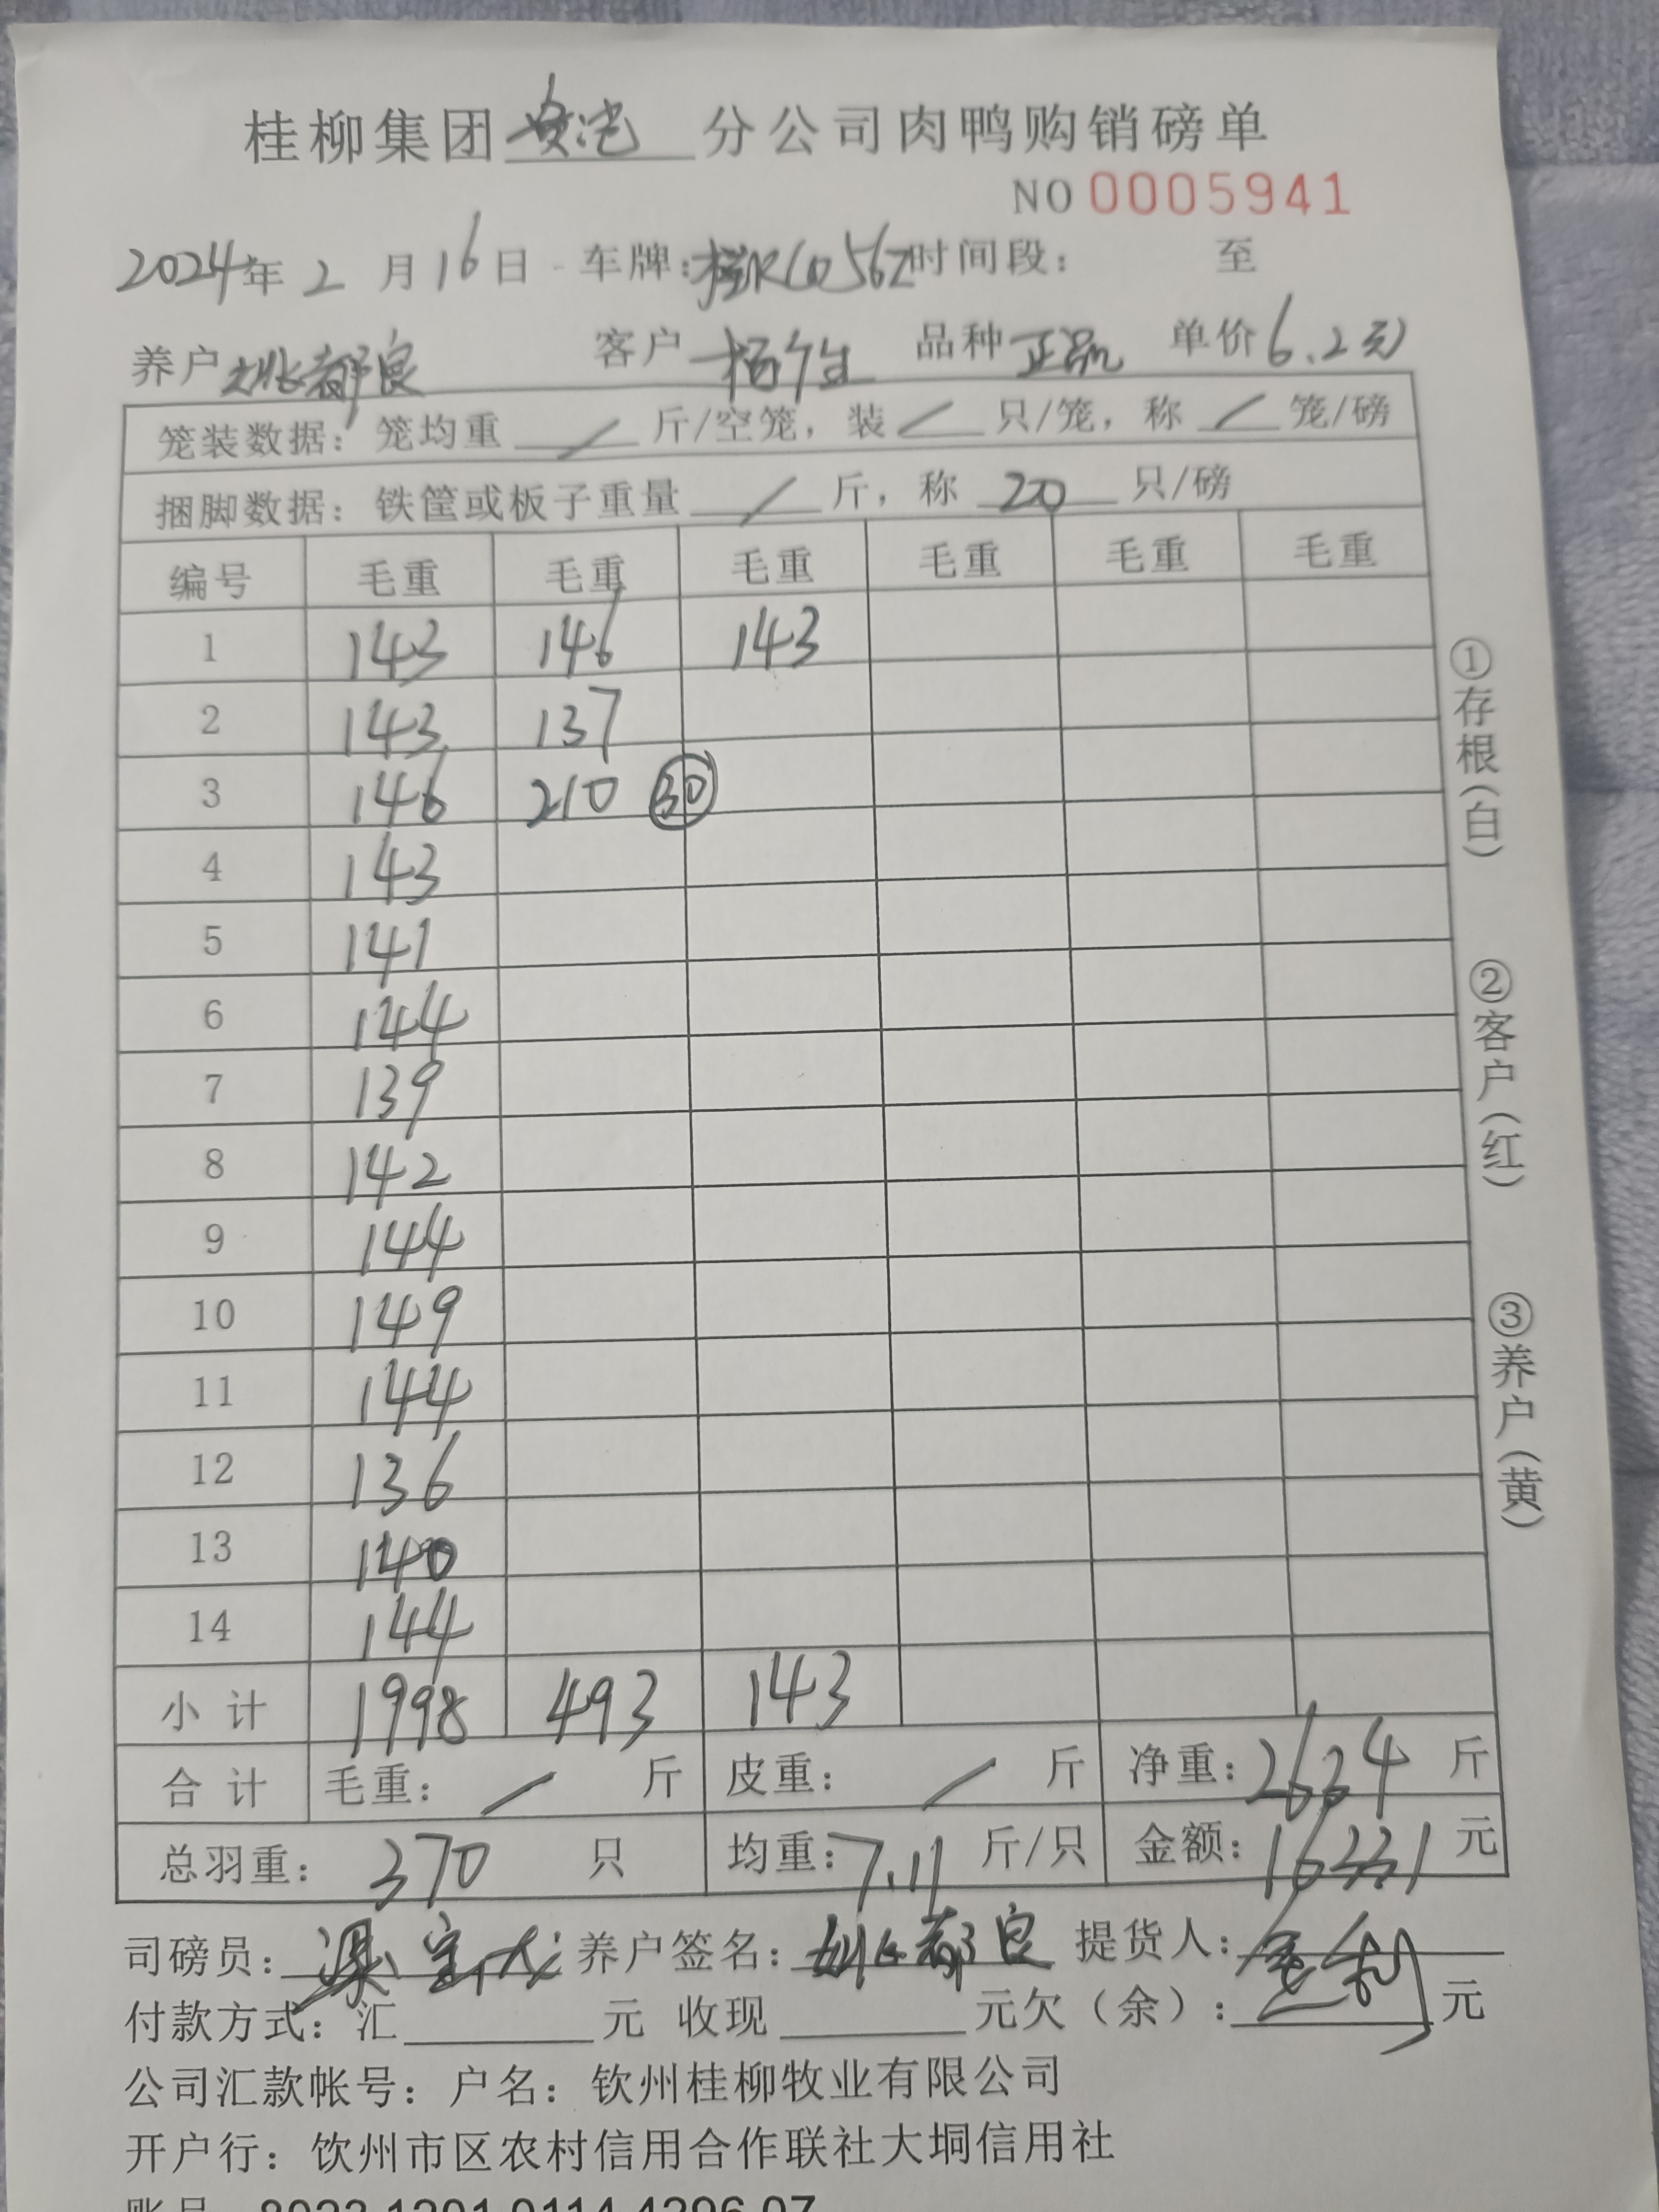 桂柳集团 分公司肉鸭购销磅单
NO 0005941
2024年 2 月 16 日 车牌: 时间段: 至
养户 姚都良 客户 杨生 品种 正品 单价 6.2元
笼装数据: 笼均重 / 斤/空笼, 装 / 只/笼, 称 / 笼/磅
捆脚数据: 铁筐或板子重量 / 斤, 称 20 只/磅
编号 毛重 毛重 毛重 毛重 毛重 毛重
1 143 146 143
2 143 137
3 146 210 30
4 143
5 141
6 144
7 139
8 142
9 144
10 149
11 144
12 136
13 140
14 144
小 计 1998 493 143
合 计 毛重: / 斤 皮重: / 斤 净重: 2634 斤
总羽重: 370 只 均重: 7.11 斤/只 金额: 16331 元
司磅员: 养户签名: 姚都良 提货人:
付款方式: 汇 元 收现 元欠(余): 元
公司汇款帐号: 户名: 钦州桂柳牧业有限公司
开户行: 饮州市区农村信用合作联社大垌信用社
①存根(白)
②客户(红)
③养户(黄)